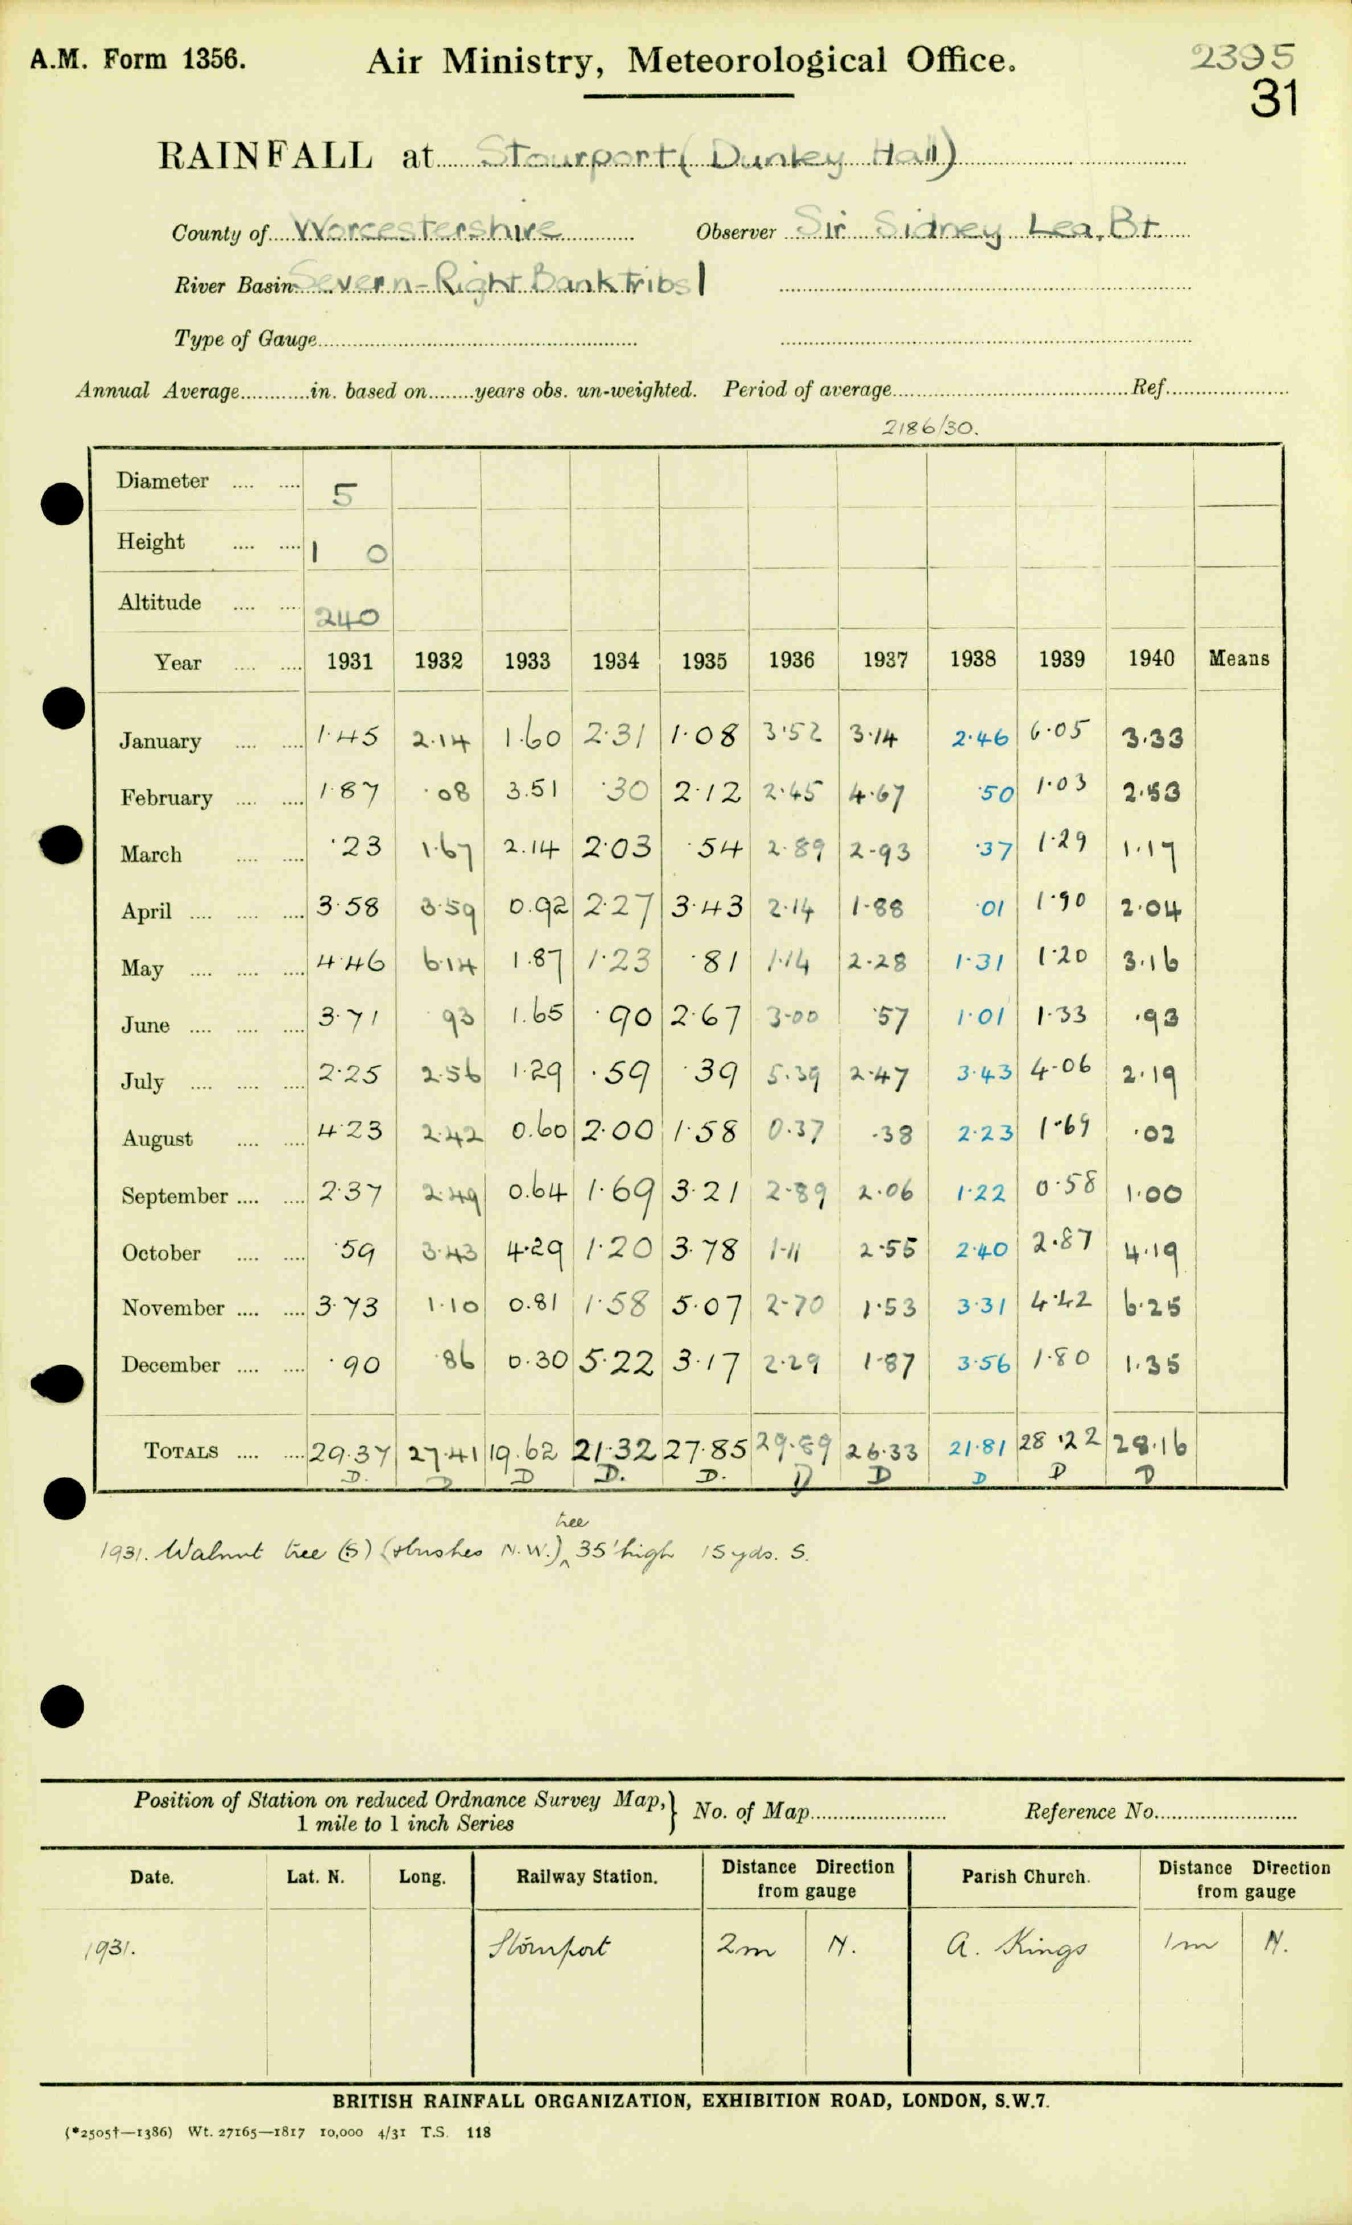 A.M. Form 1356. Air Ministry, Meteorological Office. 2395
31
RAINFALL at Stourport (Dunley Hall)
County of Worcestershire Observer Sir Sidney Lea, Bt.
River Basin Severn-Right Bank Tribs
Type of Gauge
Annual Average in. based on years obs. un-weighted. Period of average Ref.
2186/30.
Diameter 5
Height 1 0
Altitude 240
Year 1931 1932 1933 1934 1935 1936 1937 1938 1939 1940 Means
January 1.45 2.14 1.60 2.31 1.08 3.52 3.14 2.46 6.05 3.33
February 1.87 .08 3.51 .30 2.12 2.45 4.67 .50 1.03 2.53
March .23 1.67 2.14 2.03 .54 2.89 2.93 .37 1.29 1.17
April 3.58 3.59 0.92 2.27 3.43 2.14 1.88 .01 1.90 2.04
May 4.46 6.14 1.87 1.23 .81 1.14 2.28 1.31 1.20 3.16
June 3.71 .93 1.65 .90 2.67 3.00 .57 1.01 1.33 .93
July 2.25 2.56 1.29 .59 .39 5.39 2.47 3.43 4.06 2.19
August 4.23 2.42 0.60 2.00 1.58 0.37 .38 2.23 1.69 .02
September 2.37 2.49 0.64 1.69 3.21 2.89 2.06 1.22 0.58 1.00
October .59 3.43 4.29 1.20 3.78 1.11 2.55 2.40 2.87 4.19
November 3.73 1.10 0.81 1.58 5.07 2.70 1.53 3.31 4.42 6.25
December .90 .86 0.30 5.22 3.17 2.29 1.87 3.56 1.80 1.35
TOTALS 29.37 27.41 19.62 21.32 27.85 29.89 26.33 21.81 28.22 28.16
D. D D D. D. D D D D D
tree
1931. Walnut tree (S) (& bushes N.W.) 35' high 15 yds. S.
Position of Station on reduced Ordnance Survey Map, No. of Map Reference No.
1 mile to 1 inch Series
Date. Lat. N. Long. Railway Station. Distance Direction from gauge Parish Church. Distance Direction from gauge
1931. Stourport 2m N. A. Kings 1m N.
BRITISH RAINFALL ORGANIZATION, EXHIBITION ROAD, LONDON, S.W.7.
(*2505†—1386) Wt. 27165—1817 10,000 4/31 T.S. 118